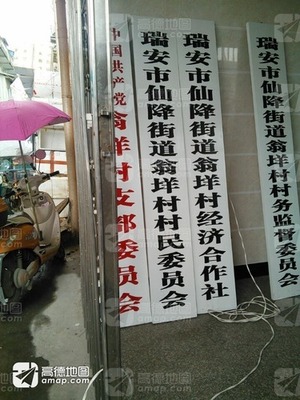 中国共产党翁垟村支部委员会
瑞安市仙降街道翁垟村村民委员会
瑞安市仙降街道翁垟村经济合作社
瑞安市仙降街道翁垟村村务监督委员会
高德地图
amap.com
高德地图
amap.com